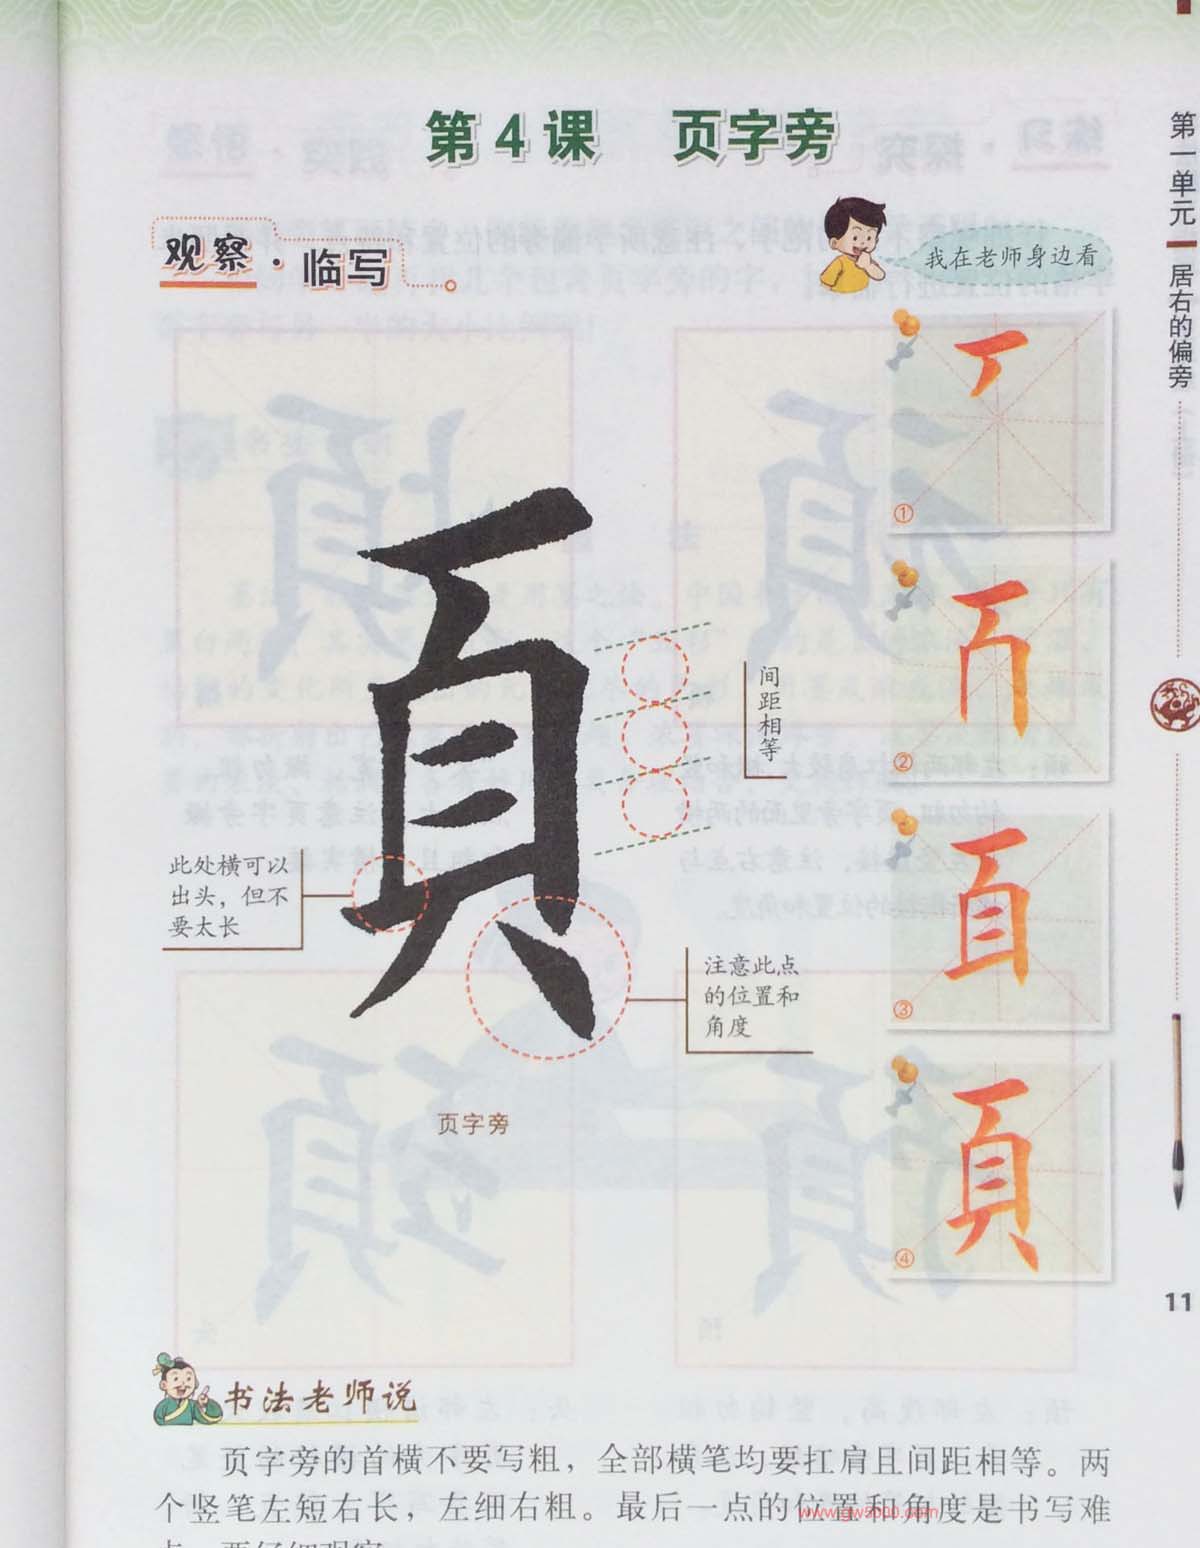 第4课 页字旁
观察·临写
我在老师身边看
第一单元
居右的偏旁
①
②
③
④
頁
间距相等
此处横可以
出头，但不
要太长
注意此点
的位置和
角度
页字旁
11
书法老师说
页字旁的首横不要写粗，全部横笔均要扛肩且间距相等。两
个竖笔左短右长，左细右粗。最后一点的位置和角度是书写难
www.gw5000.com